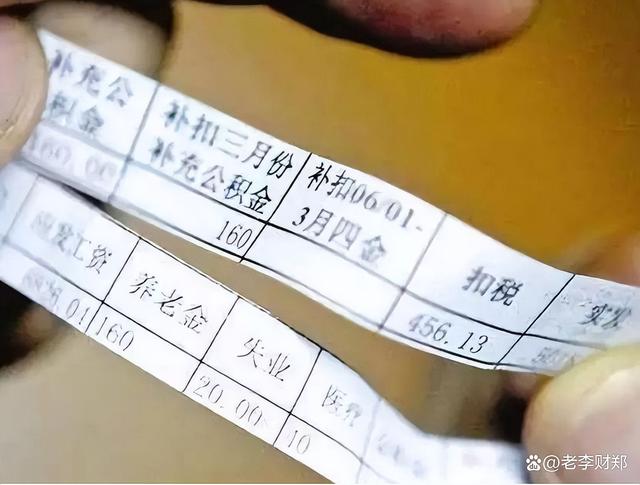 补充公 补扣三月份 补扣06/01-
积金 补充公积金 3月四金 扣税 实发
160.00 160 456.13
应发工资 养老金 失业 医疗
160 20.00 40
@老李财郑